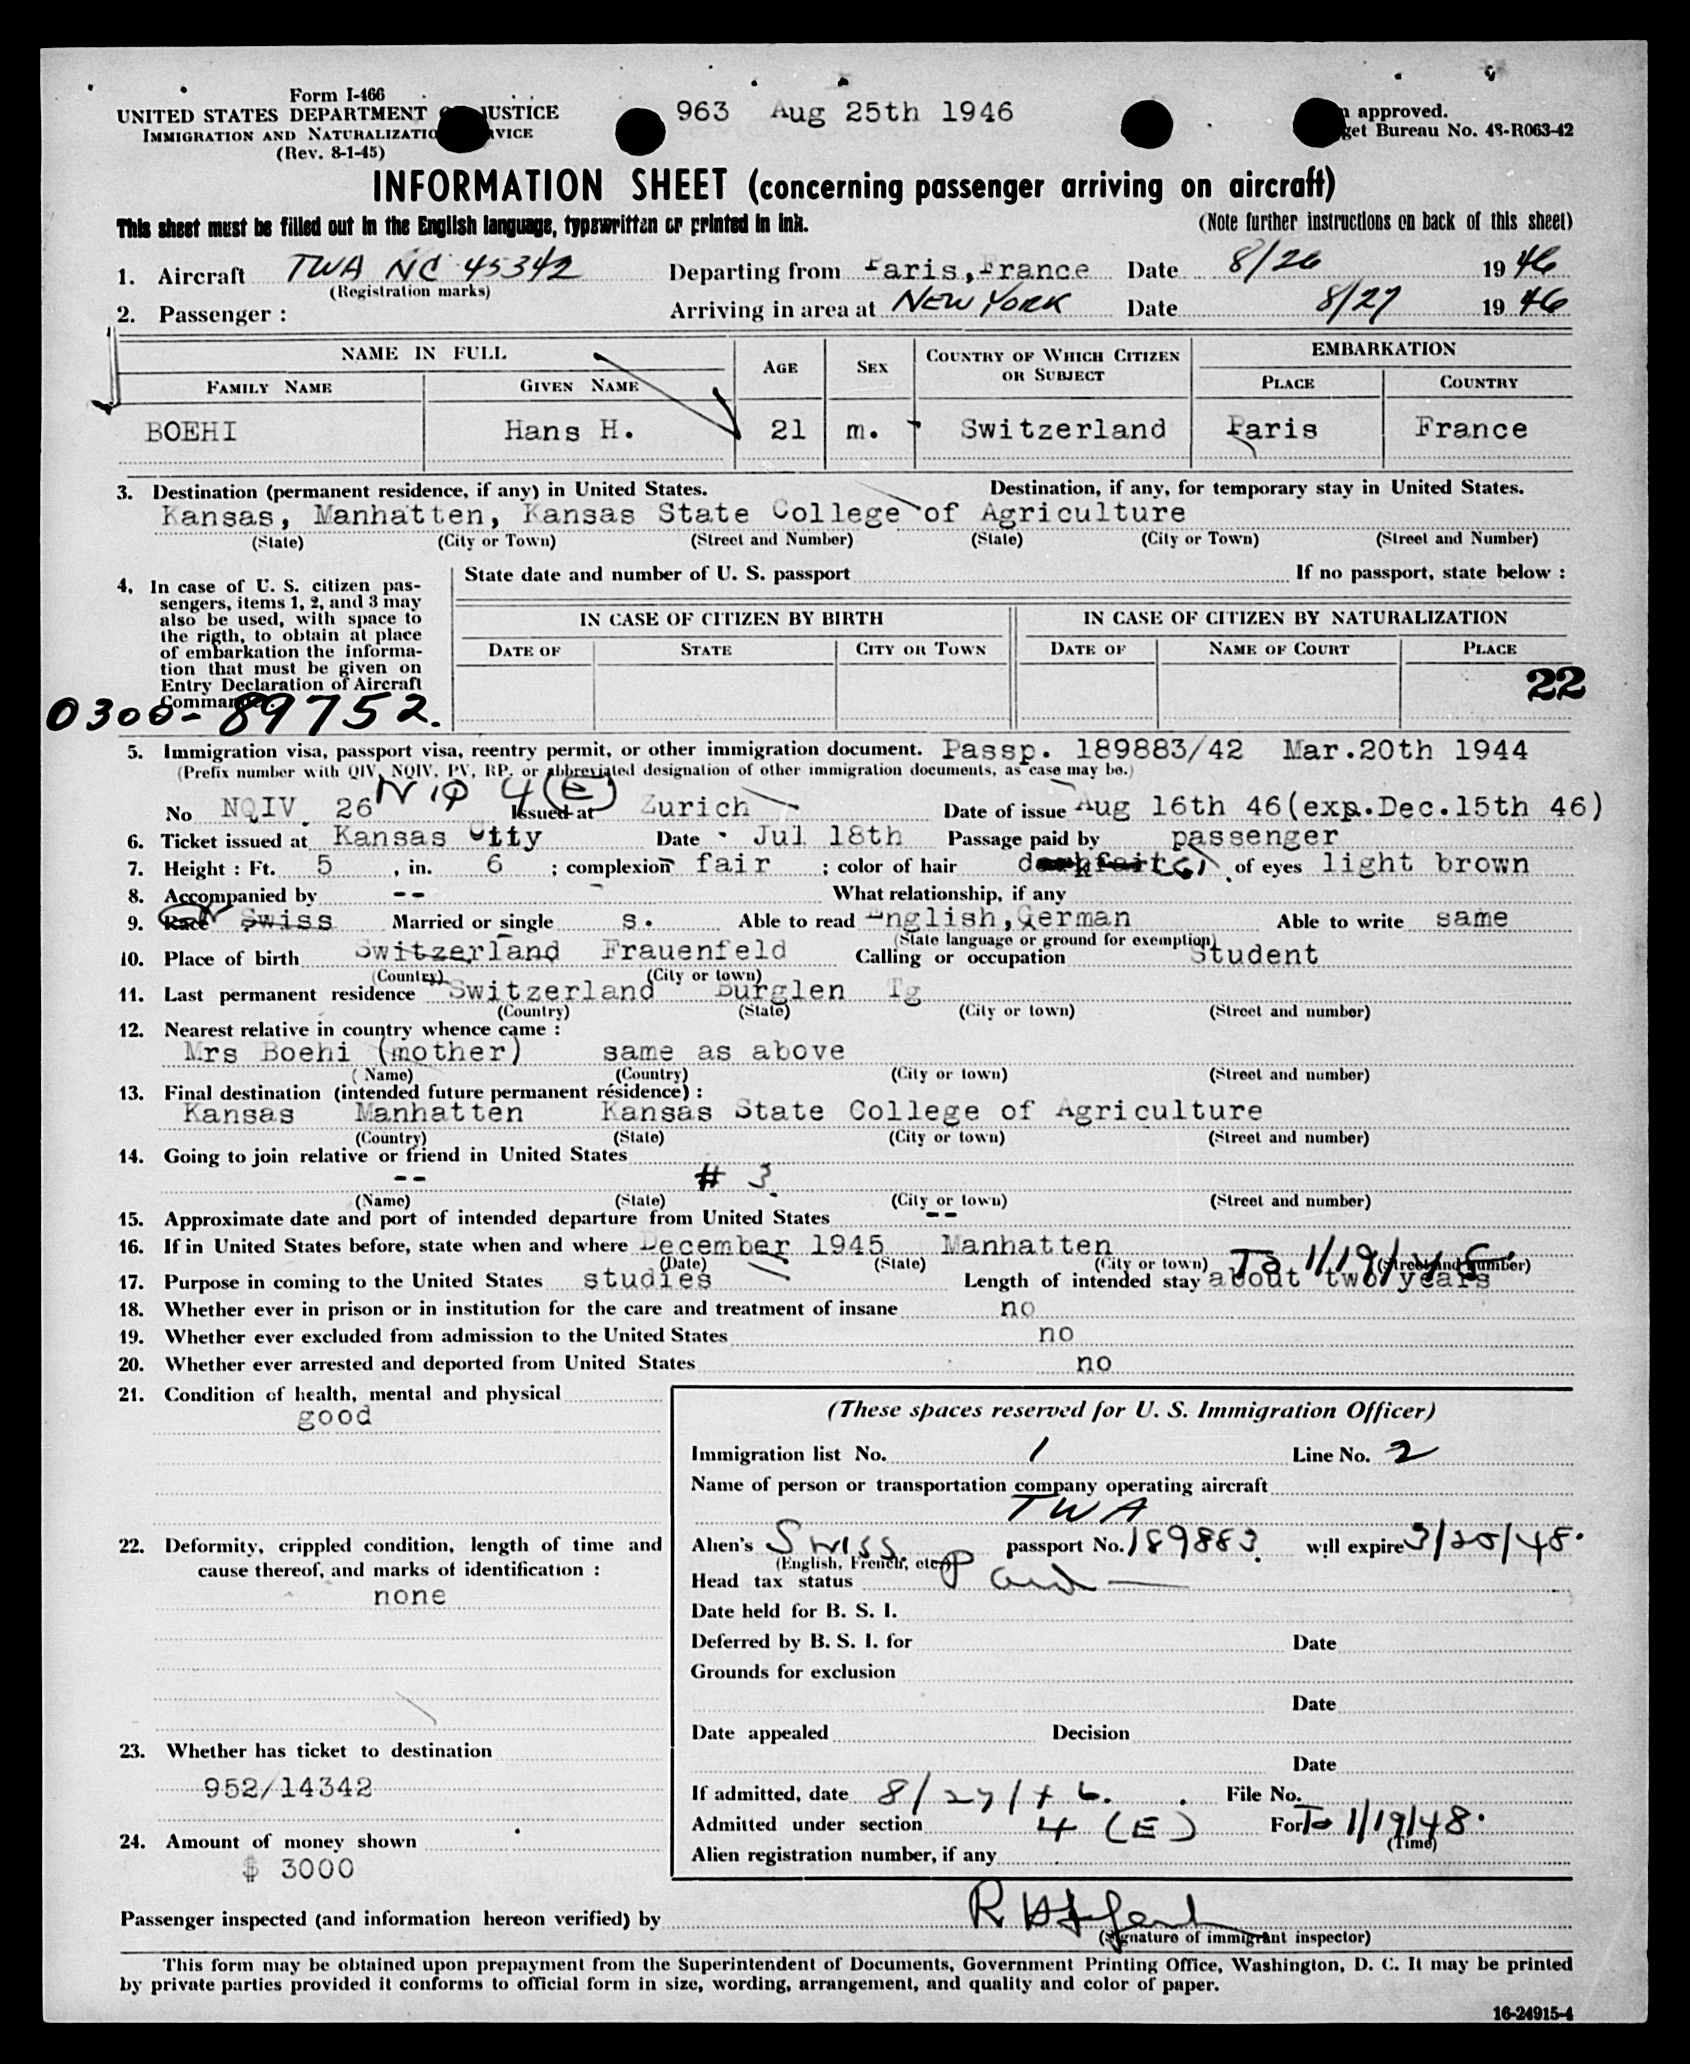 Form I-466
UNITED STATES DEPARTMENT JUSTICE
IMMIGRATION AND NATURALIZATIO VICE
(Rev. 8-1-45)
963 Aug 25th 1946
approved.
get Bureau No. 43-R063-42
INFORMATION SHEET (concerning passenger arriving on aircraft)
This sheet must be filled out in the English language, typewritten or printed in ink.
(Note further instructions on back of this sheet)
1. Aircraft TWA NC 45342 Departing from Paris, France Date 8/26 1946
(Registration marks)
2. Passenger : Arriving in area at NEW YORK Date 8/27 1946
NAME IN FULL AGE SEX COUNTRY OF WHICH CITIZEN OR SUBJECT EMBARKATION
FAMILY NAME GIVEN NAME PLACE COUNTRY
BOEHI Hans H. 21 m. Switzerland Paris France
3. Destination (permanent residence, if any) in United States. Destination, if any, for temporary stay in United States.
Kansas, Manhatten, Kansas State College of Agriculture
(State) (City or Town) (Street and Number) (State) (City or Town) (Street and Number)
4. In case of U. S. citizen pas-
sengers, items 1, 2, and 3 may
also be used, with space to
the rigth, to obtain at place
of embarkation the informa-
tion that must be given on
Entry Declaration of Aircraft
Comman
0300-89752.
State date and number of U. S. passport If no passport, state below :
IN CASE OF CITIZEN BY BIRTH IN CASE OF CITIZEN BY NATURALIZATION
DATE OF STATE CITY OR TOWN DATE OF NAME OF COURT PLACE
22
5. Immigration visa, passport visa, reentry permit, or other immigration document. Passp. 189883/42 Mar.20th 1944
(Prefix number with QIV, NQIV, PV, RP, or abbreviated designation of other immigration documents, as case may be.)
No NQIV 26 4(E) Issued at Zurich Date of issue Aug 16th 46(exp.Dec.15th 46)
6. Ticket issued at Kansas City Date Jul 18th Passage paid by passenger
7. Height : Ft. 5 , in. 6 ; complexion fair ; color of hair of eyes light brown
8. Accompanied by -- What relationship, if any
9. Race Swiss Married or single s. Able to read English,German Able to write same
(State language or ground for exemption)
10. Place of birth Switzerland Frauenfeld Calling or occupation Student
(Country) (City or town)
11. Last permanent residence Switzerland Burglen Tg
(Country) (State) (City or town) (Street and number)
12. Nearest relative in country whence came :
Mrs Boehi (mother) same as above
(Name) (Country) (City or town) (Street and number)
13. Final destination (intended future permanent résidence) :
Kansas Manhatten Kansas State College of Agriculture
(Country) (State) (City or town) (Street and number)
14. Going to join relative or friend in United States
-- # 3
(Name) (State) (City or town) (Street and number)
15. Approximate date and port of intended departure from United States --
16. If in United States before, state when and where December 1945 Manhatten
(Date) (State) (City or town) (Street and number)
17. Purpose in coming to the United States studies Length of intended stay about two years
18. Whether ever in prison or in institution for the care and treatment of insane no
19. Whether ever excluded from admission to the United States no
20. Whether ever arrested and deported from United States no
21. Condition of health, mental and physical
good
22. Deformity, crippled condition, length of time and
cause thereof, and marks of identification :
none
23. Whether has ticket to destination
952/14342
24. Amount of money shown
$ 3000
(These spaces reserved for U. S. Immigration Officer)
Immigration list No. 1 Line No. 2
Name of person or transportation company operating aircraft
TWA
Alien's Swiss passport No. 189883 will expire 3/20/48.
(English, French, etc.)
Head tax status Paid
Date held for B. S. I.
Deferred by B. S. I. for Date
Grounds for exclusion
Date
Date appealed Decision
Date
If admitted, date 8/27/46. File No.
Admitted under section 4 (E) For To 1/19/48.
(Time)
Alien registration number, if any
Passenger inspected (and information hereon verified) by
(Signature of immigrant inspector)
This form may be obtained upon prepayment from the Superintendent of Documents, Government Printing Office, Washington, D. C. It may be printed
by private parties provided it conforms to official form in size, wording, arrangement, and quality and color of paper.
16-24915-4